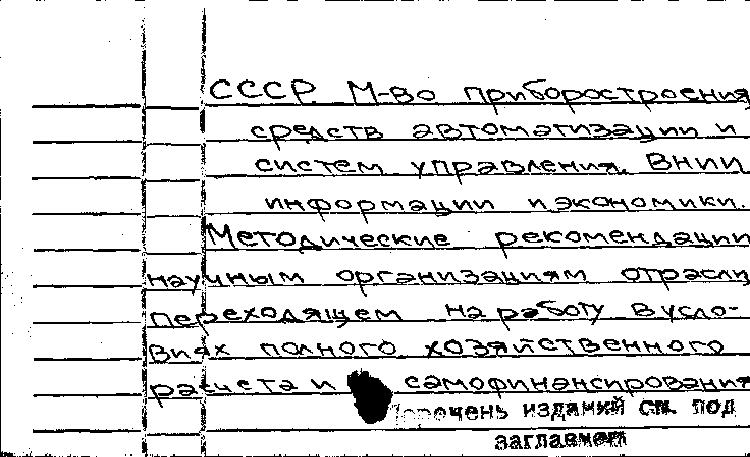 СССР. М-во приборостроения
средств автоматизации и
систем управления. ВНИИ
информации и экономики.
Методические рекомендации
научным организациям отрасли,
переходящем на работу в усло-
виях полного хозяйственного
расчета и самофинансирования
Перечень изданий см. под
заглавием